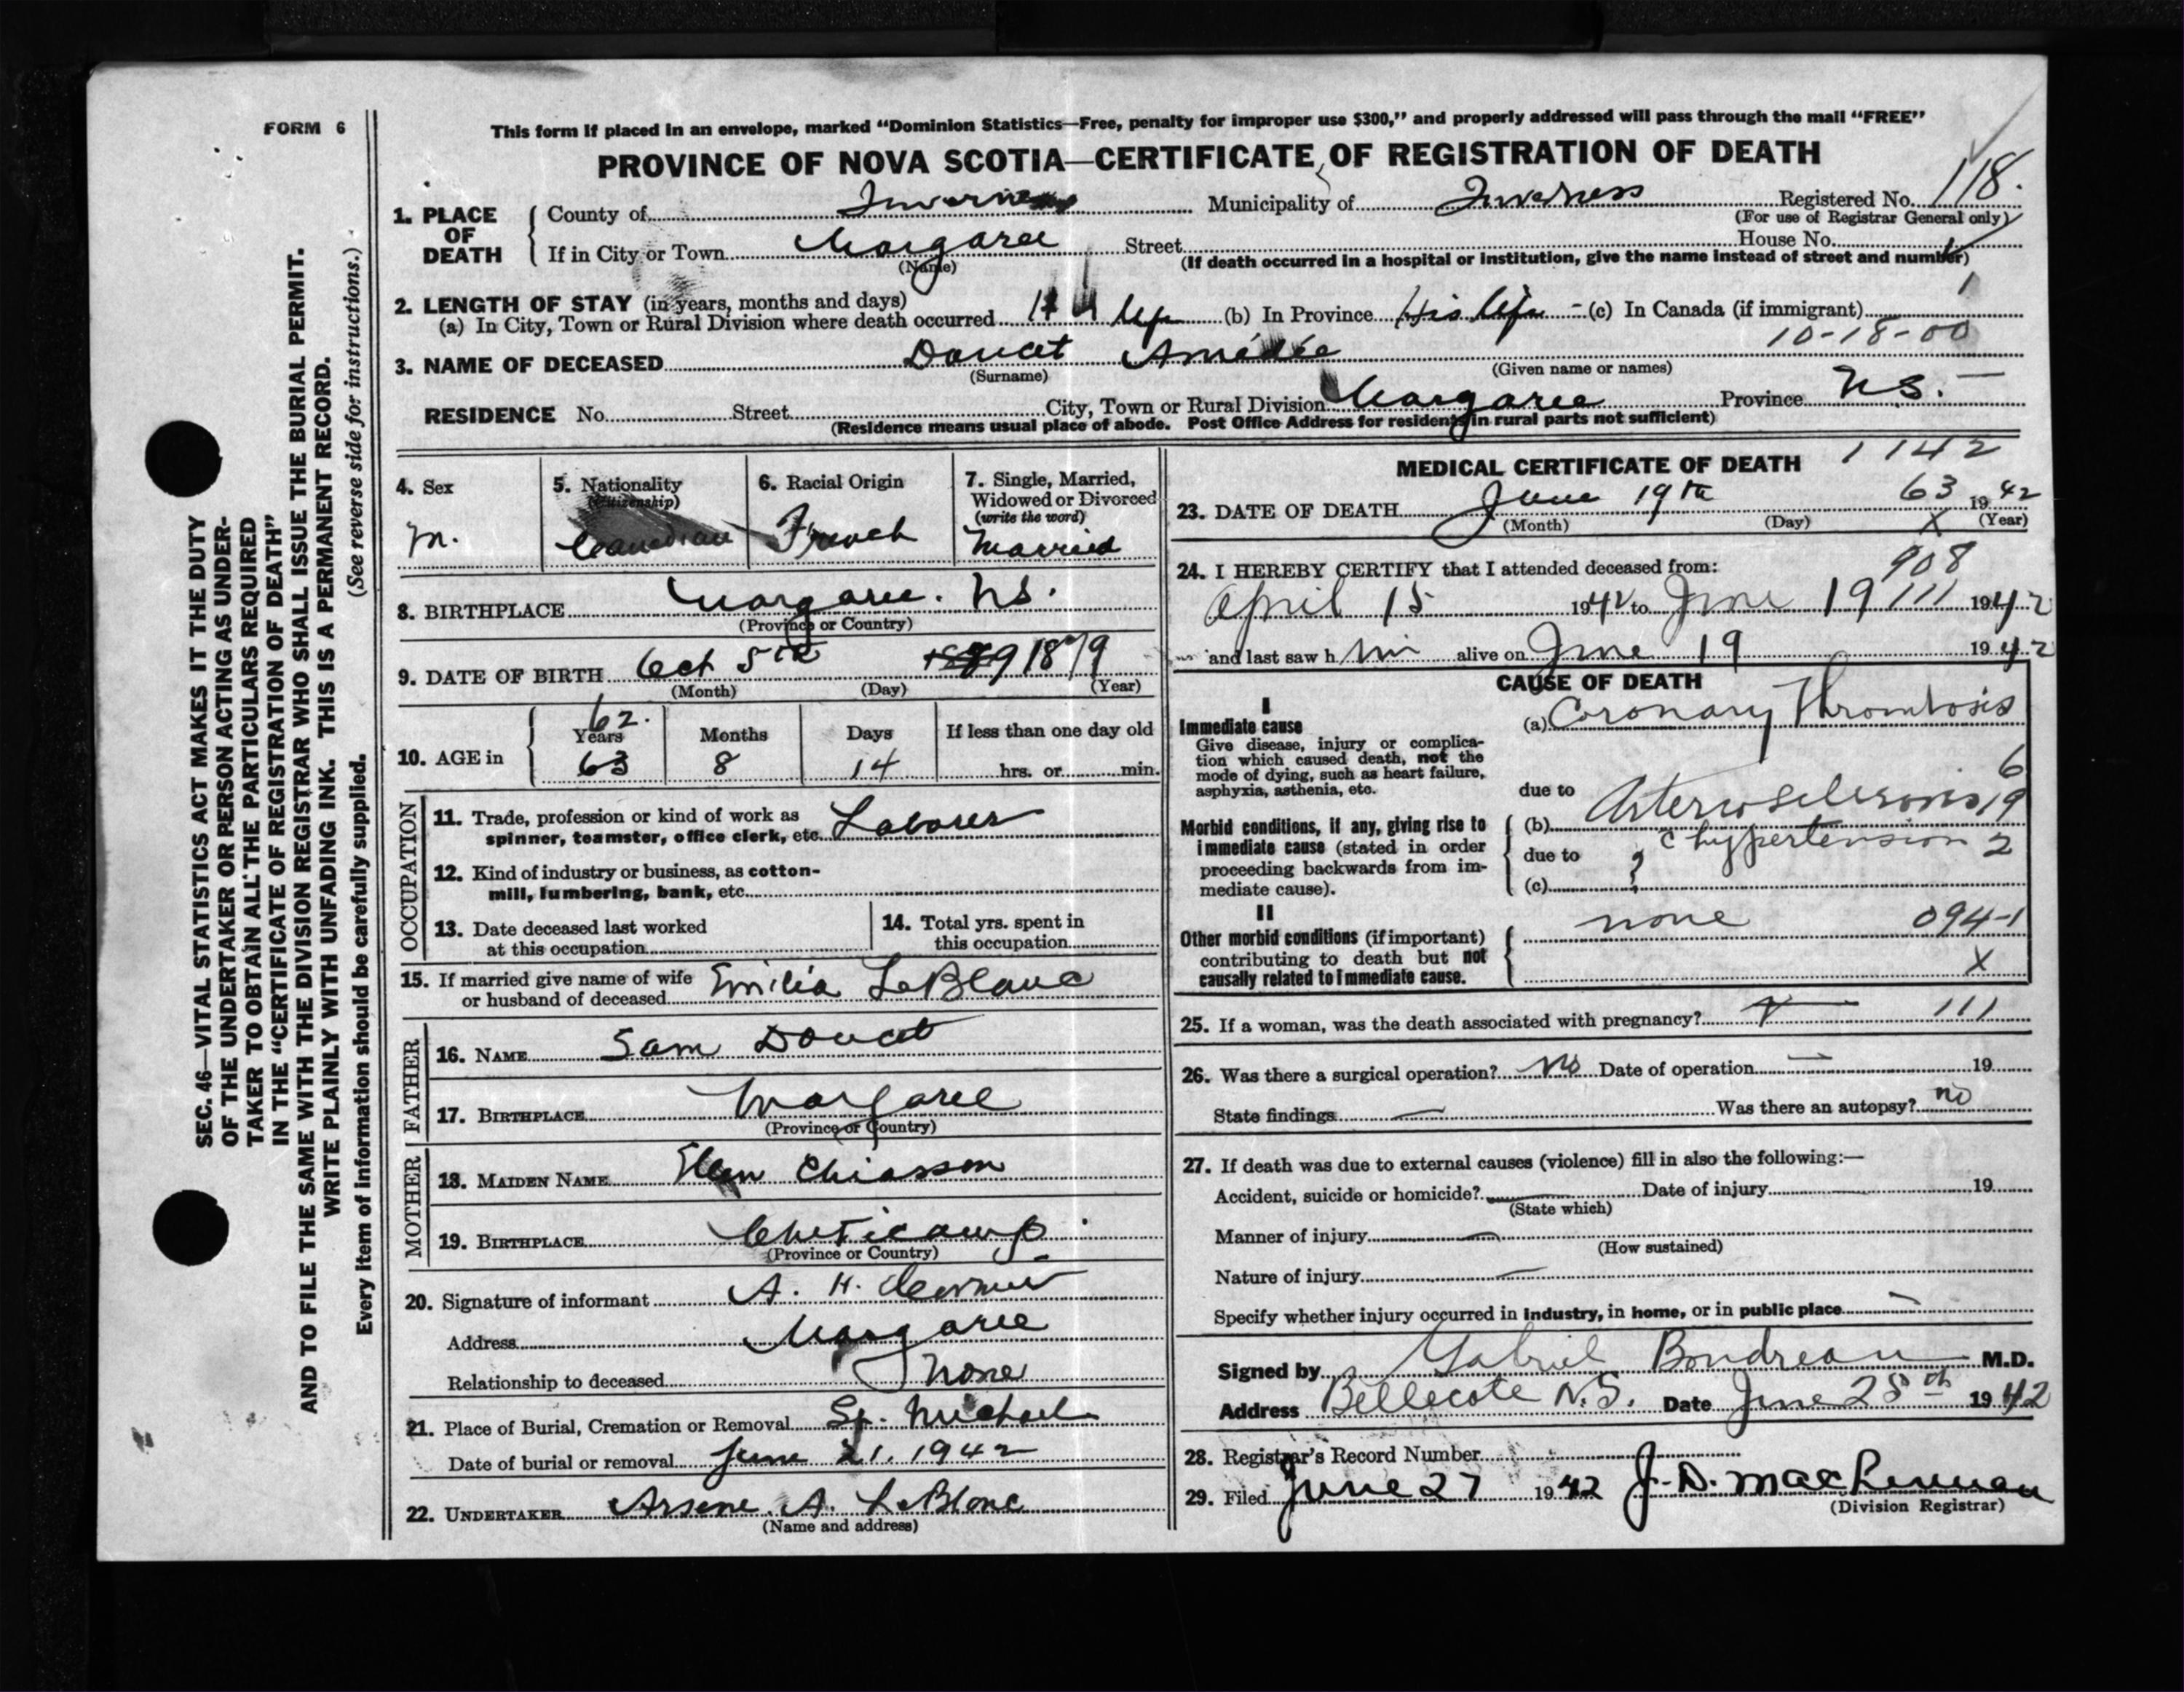 FORM 6
This form if placed in an envelope, marked “Dominion Statistics—Free, penalty for improper use $300,” and properly addressed will pass through the mail “FREE”
PROVINCE OF NOVA SCOTIA—CERTIFICATE OF REGISTRATION OF DEATH
1. PLACE OF DEATH County of Inverness Municipality of Inverness Registered No. 118.
(For use of Registrar General only)
If in City or Town Margaree Street House No.
(Name) (If death occurred in a hospital or institution, give the name instead of street and number)
2. LENGTH OF STAY (in years, months and days) 1
(a) In City, Town or Rural Division where death occurred (b) In Province His life - (c) In Canada (if immigrant)
10-18-00
3. NAME OF DECEASED Doucet Amédée
(Surname) (Given name or names)
RESIDENCE No. Street City, Town or Rural Division Margaree Province N.S. —
(Residence means usual place of abode. Post Office Address for residents in rural parts not sufficient)
4. Sex M.
5. Nationality (Citizenship) Canadian
6. Racial Origin French
7. Single, Married, Widowed or Divorced (write the word) Married
8. BIRTHPLACE Margaree. N.S.
(Province or Country)
9. DATE OF BIRTH Oct 5th 1879
(Month) (Day) (Year)
10. AGE in Years 62. 63 Months 8 Days 14 If less than one day old hrs. or min.
OCCUPATION
11. Trade, profession or kind of work as spinner, teamster, office clerk, etc. Laborer
12. Kind of industry or business, as cotton-mill, lumbering, bank, etc.
13. Date deceased last worked at this occupation
14. Total yrs. spent in this occupation
15. If married give name of wife or husband of deceased Emilia LeBlanc
FATHER
16. NAME Sam Doucet
17. BIRTHPLACE Margaree
(Province or Country)
MOTHER
18. MAIDEN NAME Ellen Chiasson
19. BIRTHPLACE Cheticamp.
(Province or Country)
20. Signature of informant A. H. Cormier
Address Margaree
Relationship to deceased None
21. Place of Burial, Cremation or Removal St. Michael
Date of burial or removal June 21. 1942
22. UNDERTAKER Arsene. A. LeBlanc
(Name and address)
MEDICAL CERTIFICATE OF DEATH 1142
23. DATE OF DEATH June 19th 63 1942
(Month) (Day) X (Year)
24. I HEREBY CERTIFY that I attended deceased from: 908
April 15 1942 to June 19 111 1942
and last saw him alive on June 19 1942
CAUSE OF DEATH
I
Immediate cause
Give disease, injury or complication which caused death, not the mode of dying, such as heart failure, asphyxia, asthenia, etc.
(a) Coronary Thrombosis
6
due to
Morbid conditions, if any, giving rise to immediate cause (stated in order proceeding backwards from immediate cause).
(b) Arteriosclerosis 19
due to c hypertension 2
(c) ?
II
Other morbid conditions (if important) contributing to death but not causally related to immediate cause.
none 094-1
X
25. If a woman, was the death associated with pregnancy? 111
26. Was there a surgical operation? No Date of operation — 19
State findings — Was there an autopsy? no
27. If death was due to external causes (violence) fill in also the following:—
Accident, suicide or homicide? Date of injury 19
(State which)
Manner of injury —
(How sustained)
Nature of injury —
Specify whether injury occurred in industry, in home, or in public place —
Signed by Gabriel Boudreau M.D.
Address Bellecote N.S. Date June 25th 1942
28. Registrar's Record Number
29. Filed June 27 1942 J. D. MacLennan
(Division Registrar)
SEC. 46—VITAL STATISTICS ACT MAKES IT THE DUTY
OF THE UNDERTAKER OR PERSON ACTING AS UNDER-
TAKER TO OBTAIN ALL THE PARTICULARS REQUIRED
IN THE “CERTIFICATE OF REGISTRATION OF DEATH”
AND TO FILE THE SAME WITH THE DIVISION REGISTRAR WHO SHALL ISSUE THE BURIAL PERMIT.
WRITE PLAINLY WITH UNFADING INK. THIS IS A PERMANENT RECORD.
Every item of information should be carefully supplied. (See reverse side for instructions.)